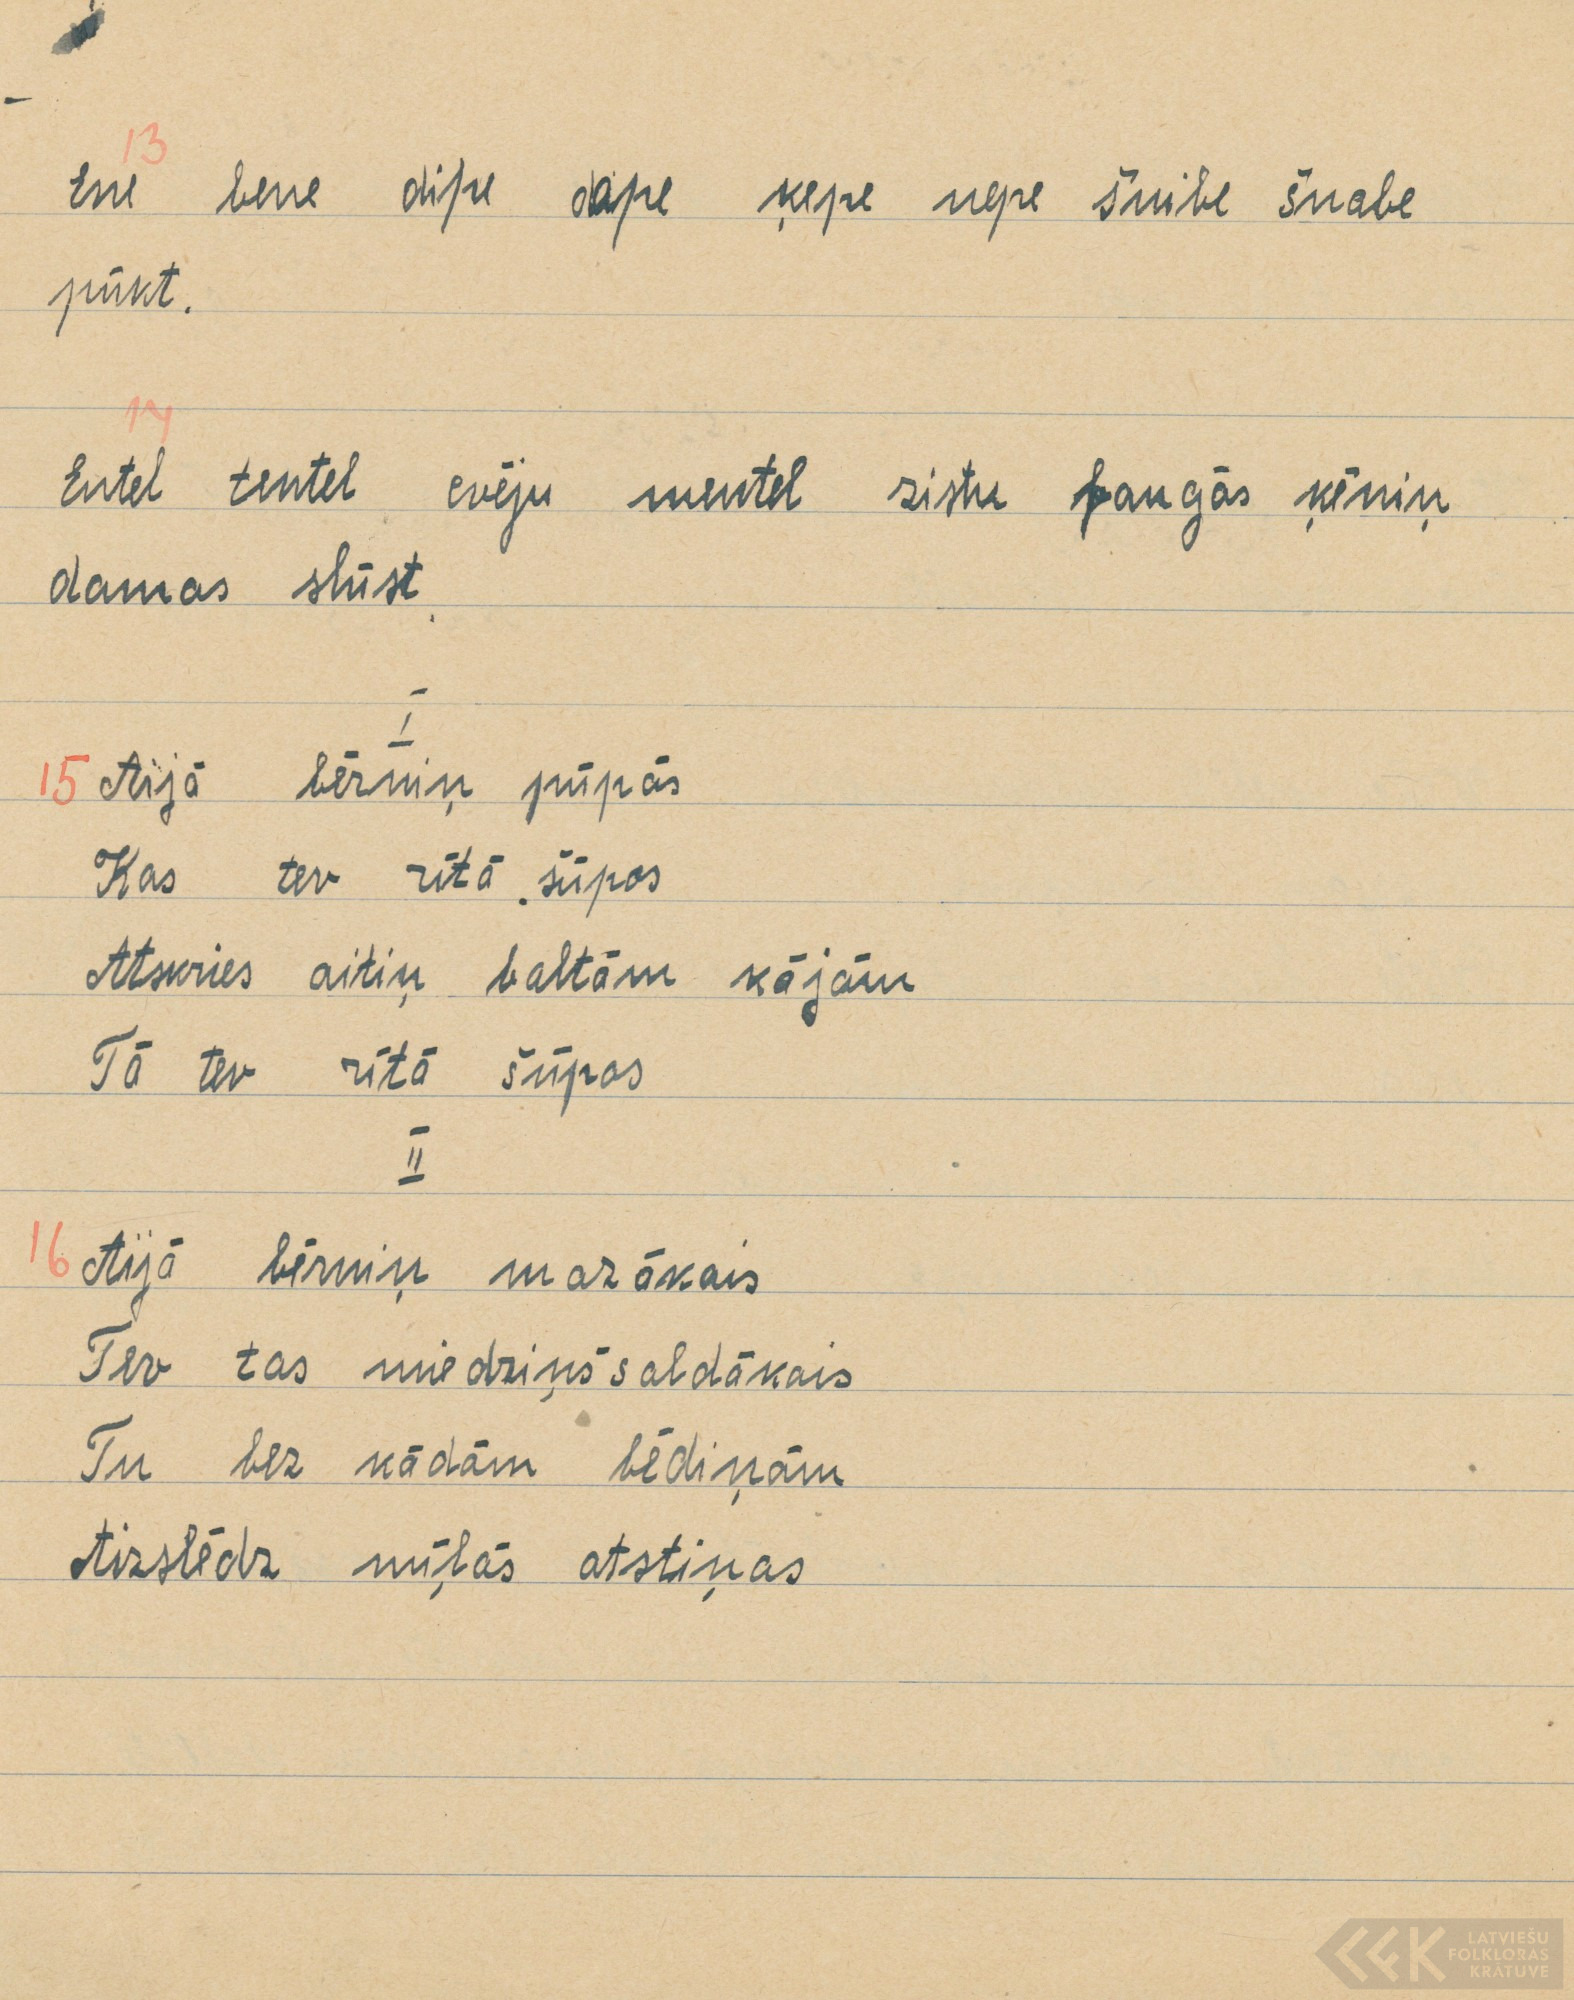 13
Ene bene dipe dape ķepe nepe šnibe šnabe
pūkt.
14
Entel tentel evēju mentel zistu paugās ķēniņ
damas slūst.
I
15 Aijā bērniņ pūpās
Kas tev rītā šūpos
Atskries aitiņ baltām kājām
Tā tev rītā šūpos
II
16 Aijā bērniņ mazākais
Tev tas miedziņš saldākais
Tu bez kādām bēdiņām
Aizslēdz mīļās atstiņas
LATVIEŠU
FOLKLORAS
KRĀTUVE